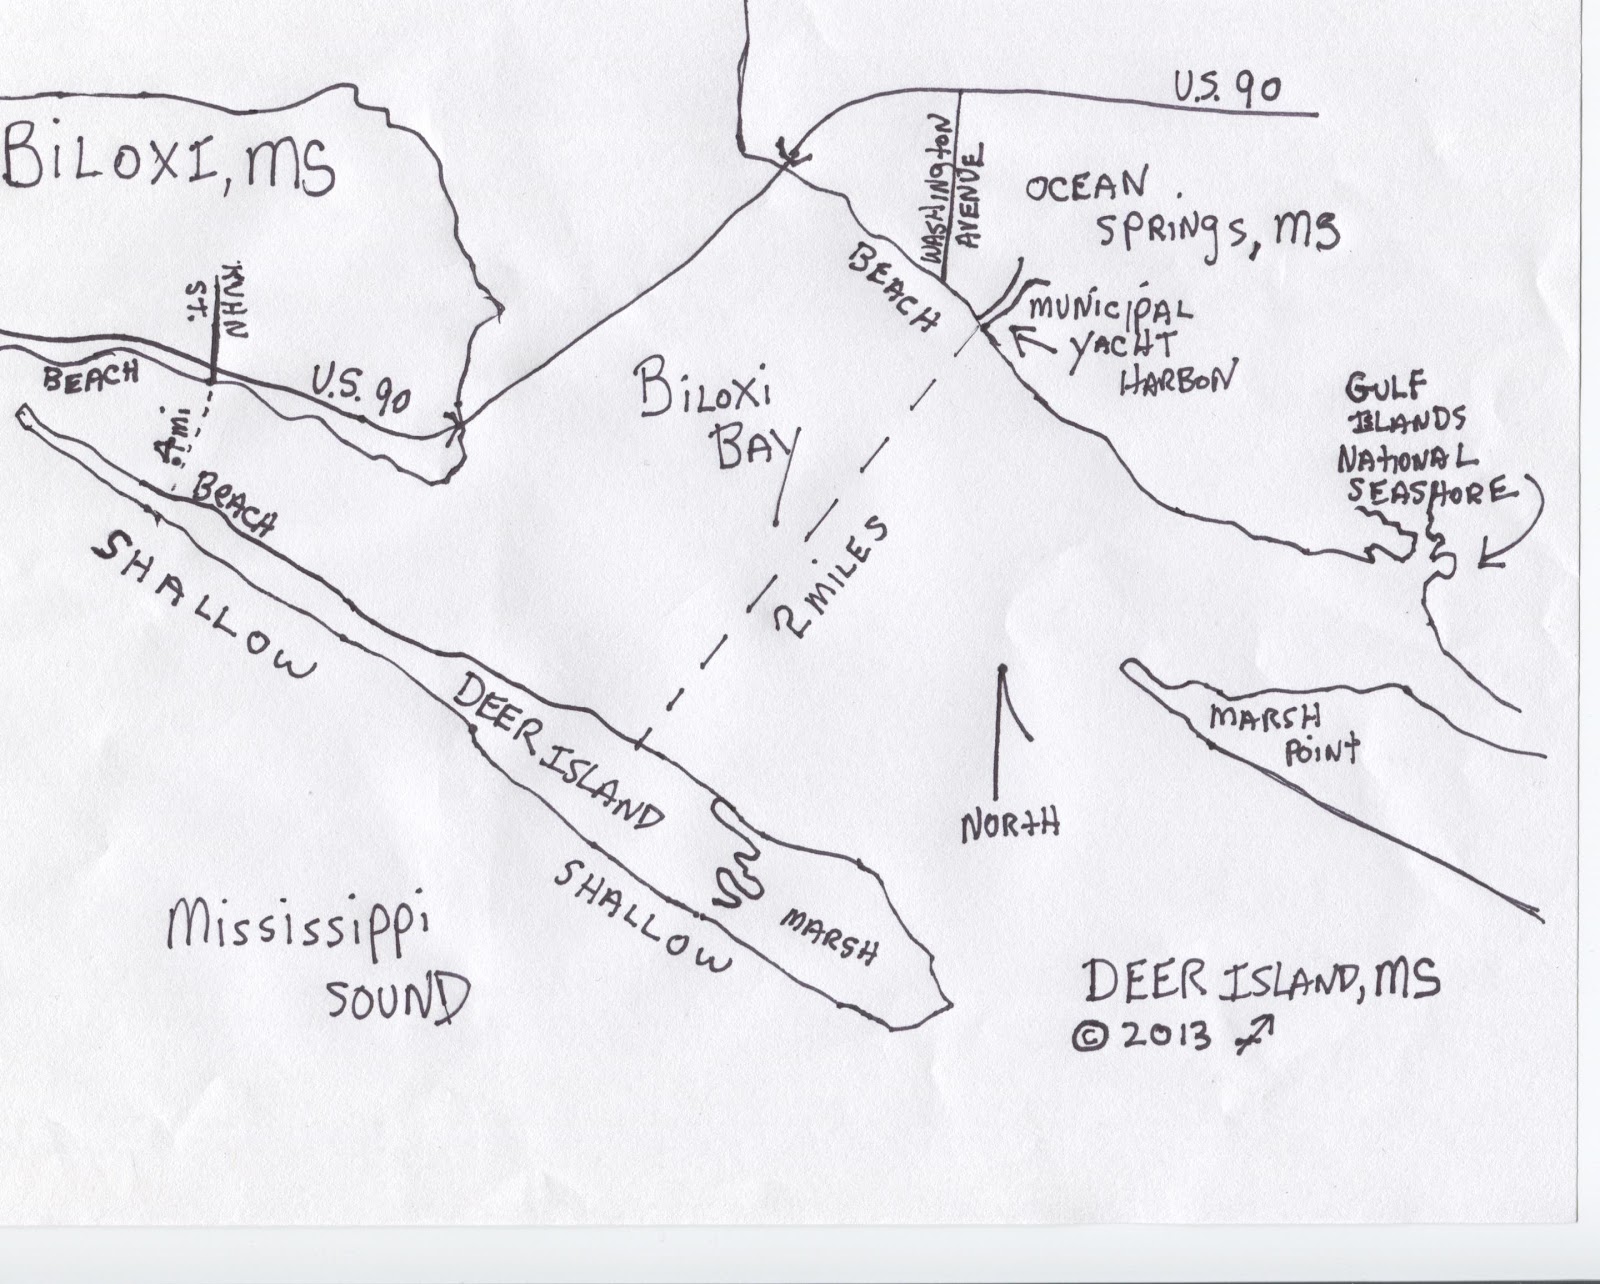 U.S. 90
BiLOXI, MS
WASHINgtON
AVENUE
OCEAN
SPRINgS, MS
BEACH
KUHN
ST.
MUNiCiPAL
YACHT
HARBON
BEACH
U.S. 90
BiLOXi
BAY
GULF
ISLANDS
NAtiONAL
SEASHORE
.4 mi
BeACH
SHALLOW
2 MiLES
DEER ISLAND
MARSH
POiNt
NORtH
SHALLOW
MARSH
Mississippi
SOUND
DEER ISLAND, MS
© 2013